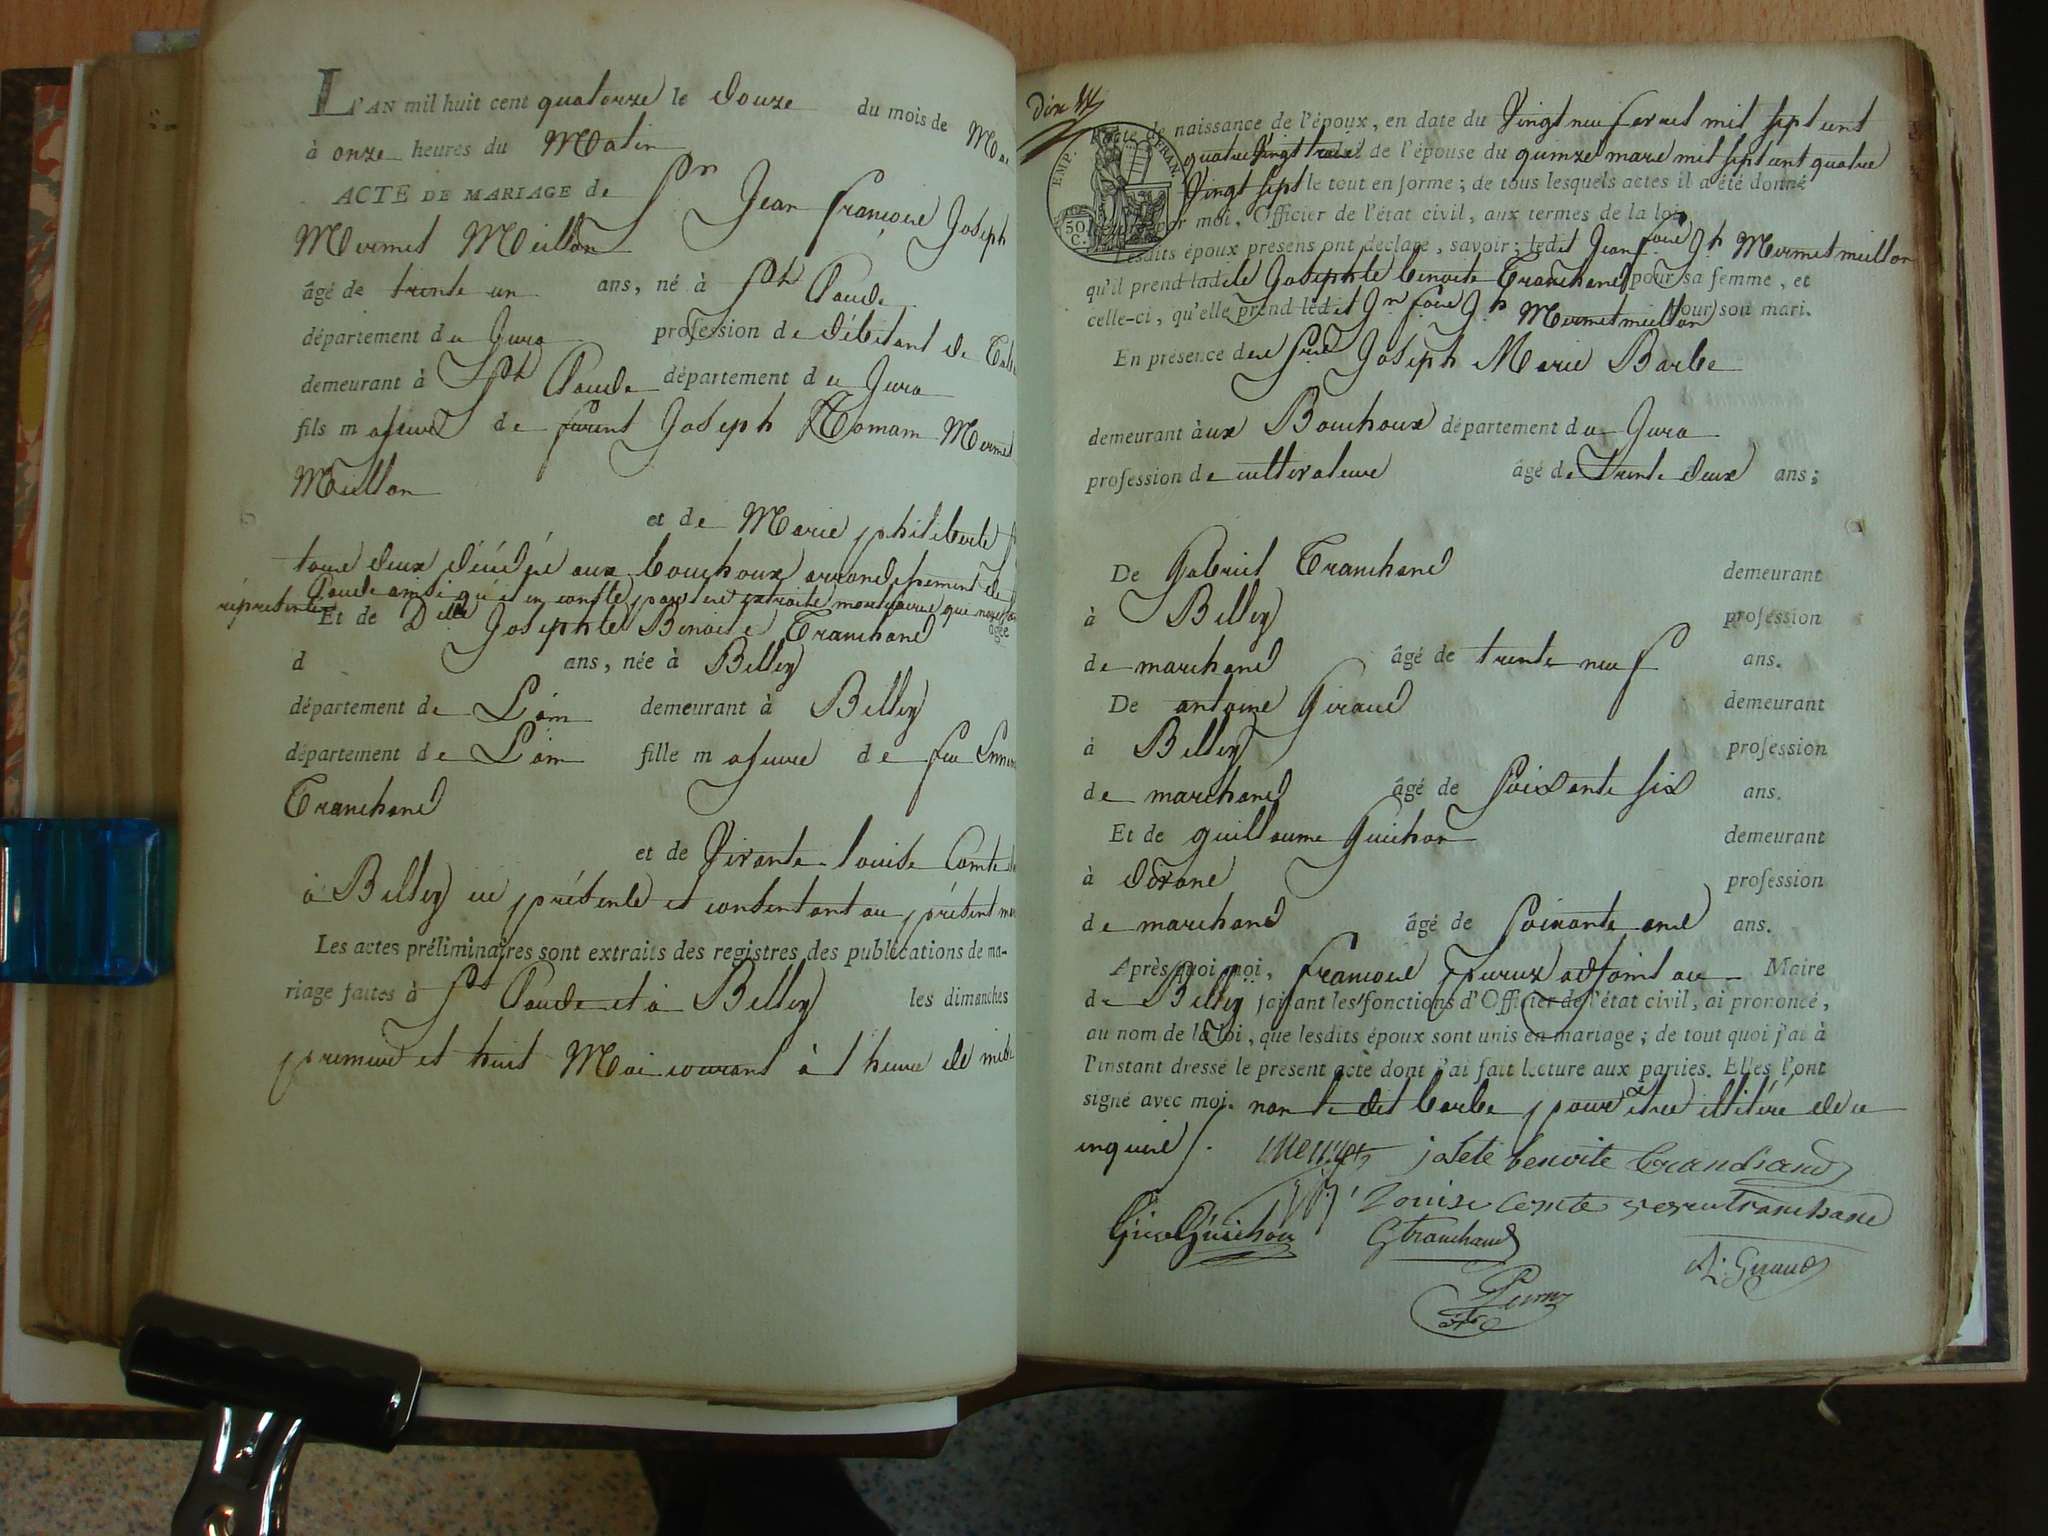 L'AN mil huit cent quatorze le douze du mois de Mai
à onze heures du Matin
ACTE DE MARIAGE de Sr Jean françois Joseph
Mermet Meillon
âgé de trente un ans, né à St Claude
département du Jura profession de débitant de
demeurant à St Claude département du Jura
fils majeur de Joseph Romain Mermet
Meillon
et de Marie philiberte
tous deux décédés aux bouchoux arrondissement de
Claude ainsi qu'il en conste par les extraits mortuaires que
représentés
Et de Dlle Josephte Benoite Tranchand âgée
d ans, née à Belley
département de L'ain demeurant à Belley
département de L'ain fille majeure de feu
Tranchand
et de Louise Comte
à Belley ici présente et consentant au présent
Les actes préliminaires sont extraits des registres des publications de ma-
riage faites à St Claude et à Belley les dimanches
premier et huit Mai courant à l'heure de midi
dix
Acte de naissance de l'époux, en date du Vingt neuf mil sept cent
quatre Vingt trois et de l'épouse du quinze mars mil sept cent quatre
Vingt sept le tout en forme; de tous lesquels actes il a été donné
EMP. FRAN.
50 C.
par moi, Officier de l'état civil, aux termes de la loi.
Lesdits époux présens ont déclaré, savoir: ledit Jean fois Jh Mermet meillon
qu'il prend ladite Josephte benoite Tranchand pour sa femme, et
celle-ci, qu'elle prend ledit Jn fois Jh Mermet meillon pour son mari.
En présence de Joseph Marie Barbe
demeurant aux Bouchoux département du Jura
profession de cultivateur âgé de trente deux ans;
De Gabriel Tranchand demeurant
à Belley profession
de marchand âgé de trente neuf ans.
De antoine Giraud demeurant
à Belley profession
de marchand âgé de Soixante six ans.
Et de guillaume Guichon demeurant
à profession
de marchand âgé de Soixante ans.
Après quoi moi, françois adjoint au Maire
de Belley faisant les fonctions d'Officier de l'état civil, ai prononcé,
au nom de la loi, que lesdits époux sont unis en mariage; de tout quoi j'ai à
l'instant dressé le présent acte dont j'ai fait lecture aux parties. Elles l'ont
signé avec moi. non le dit barbe pour être illitéré de ce
enquis
Mermet josete benoite tranchand
Louise comte tranchand
Guichon G tranchand
A. Giraud